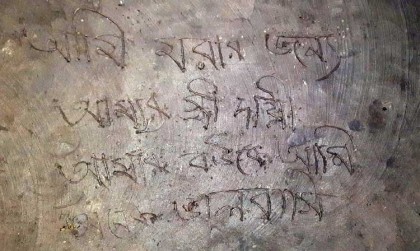 আমি মরার জন্য
আমার স্ত্রী দায়ি
আমার বউকে আমি
অনেক ভালবাসি